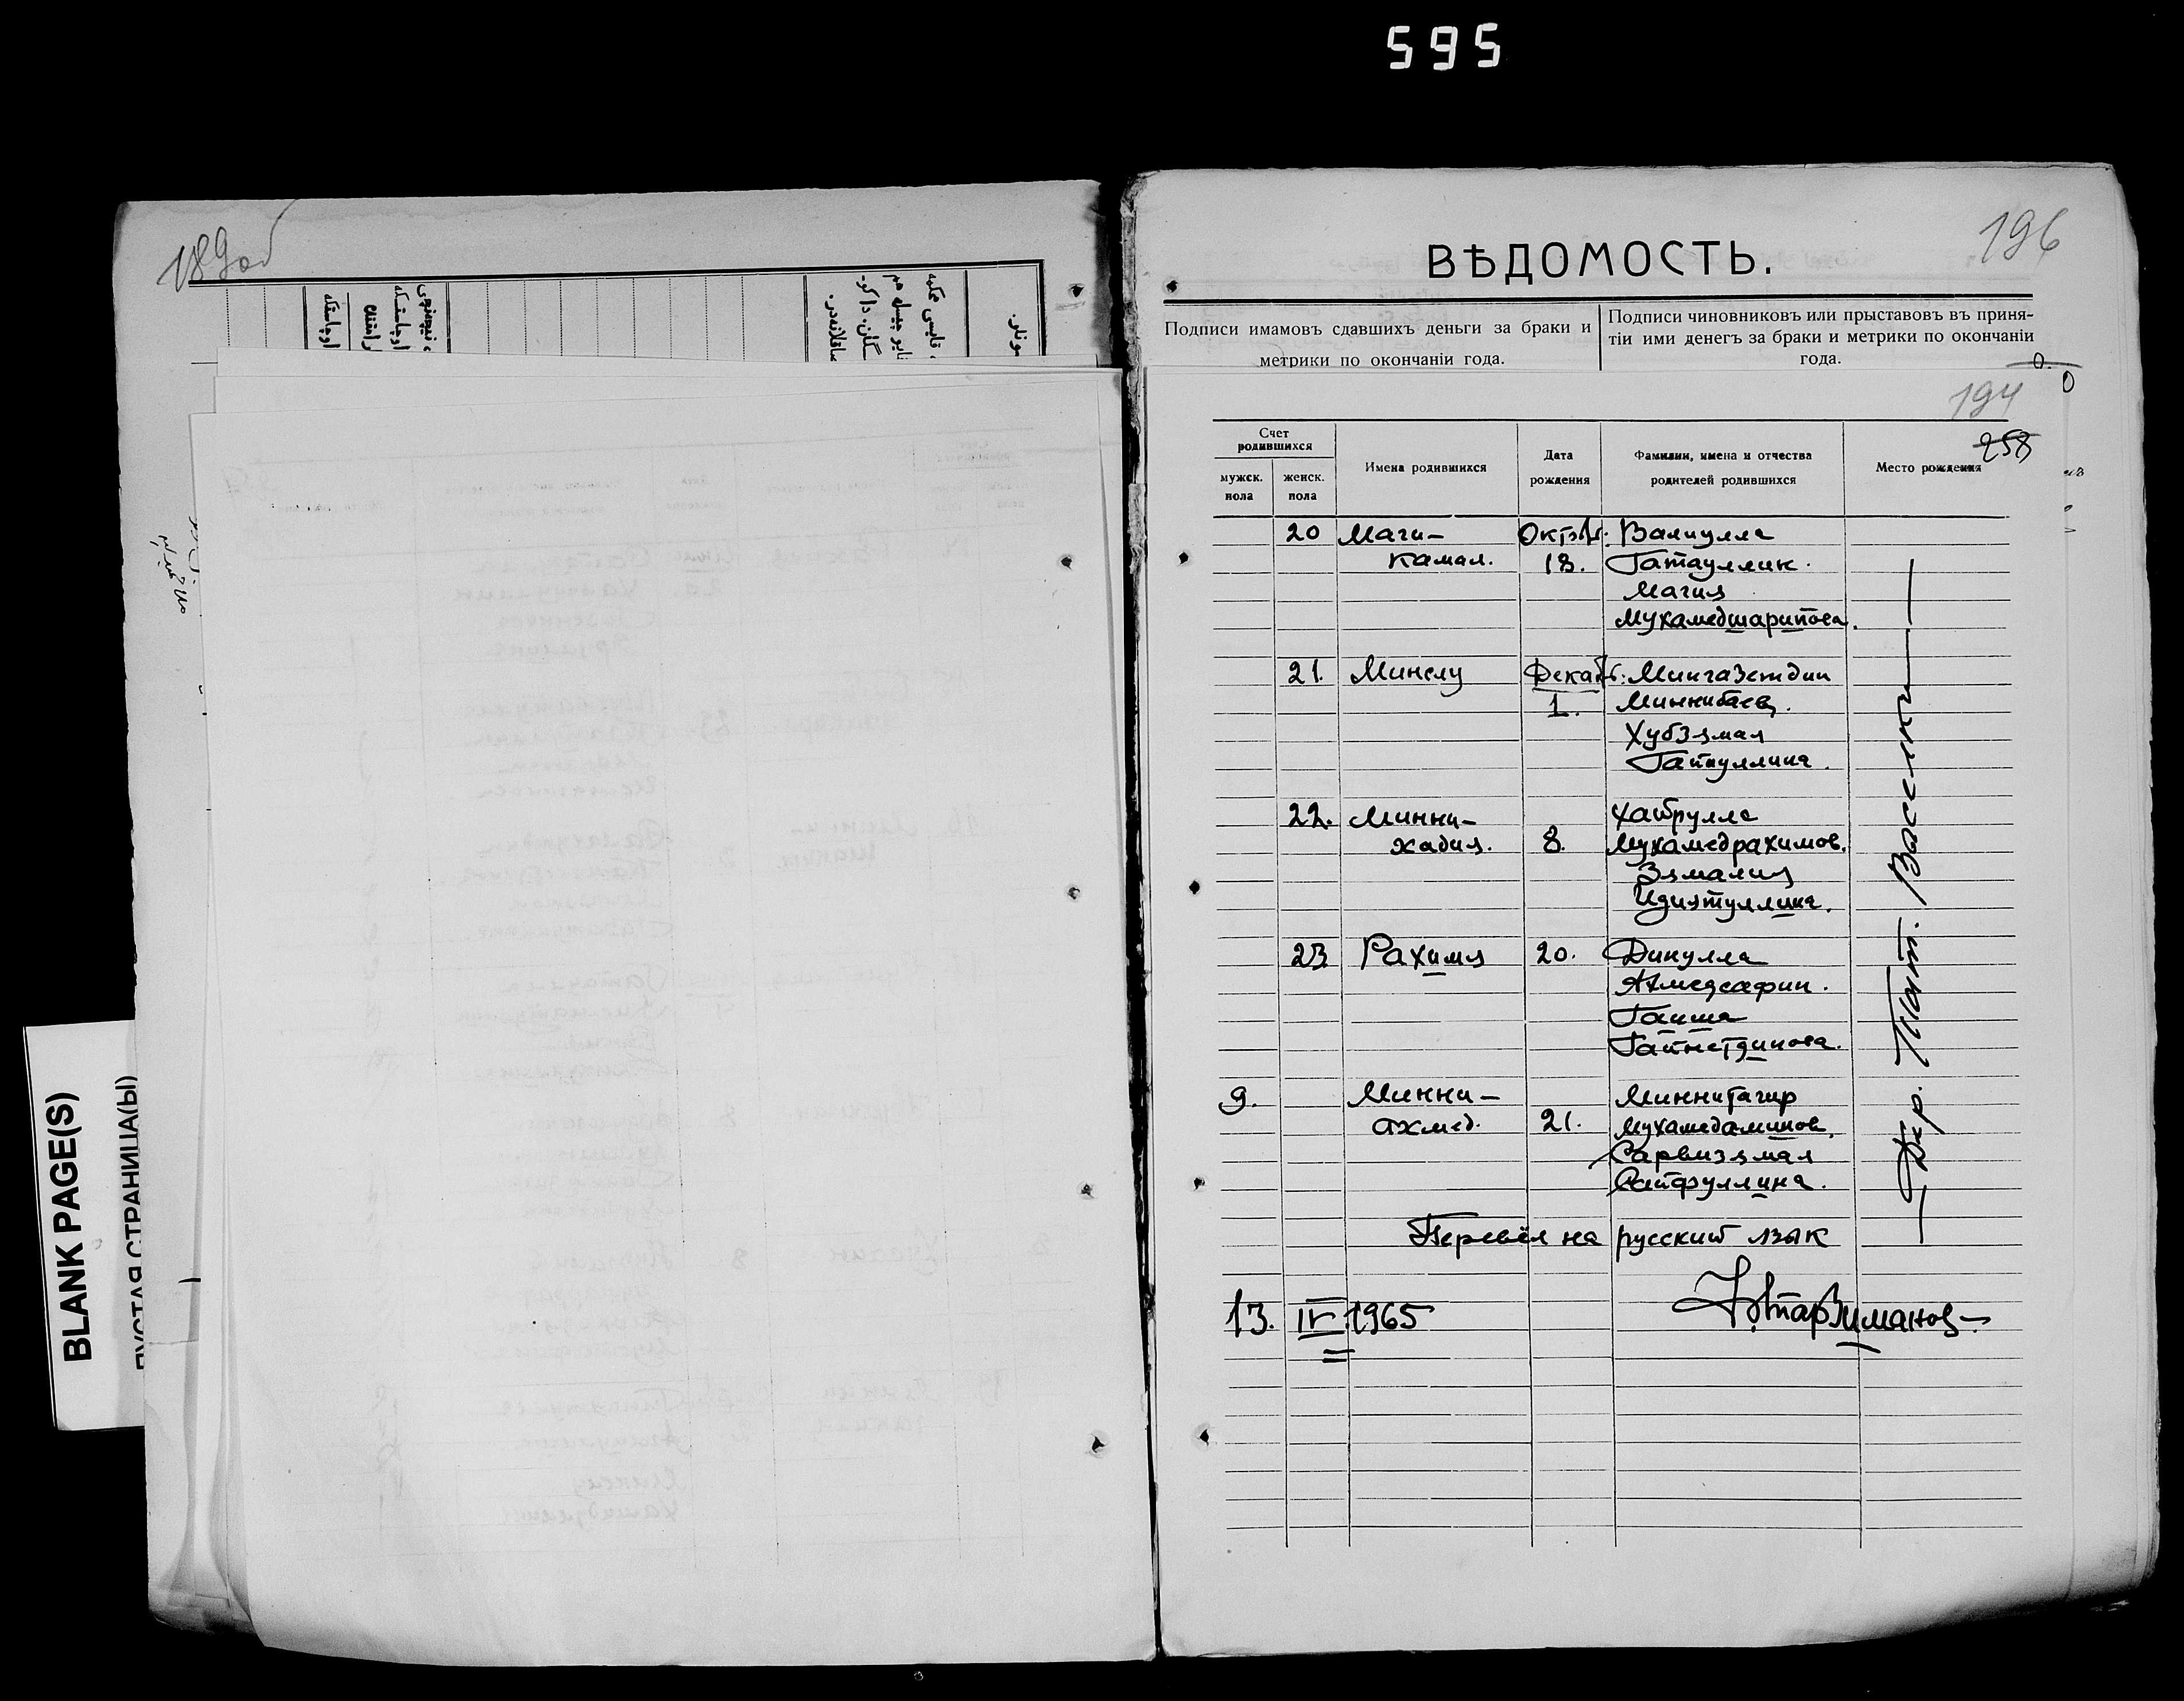 595
189об
BLANK PAGE(S)
ПУСТАЯ СТРАНИЦА(Ы)
196
ВѢДОМОСТЬ.
Подписи имамовъ сдавшихъ деньги за браки и
метрики по окончаніи года.
Подписи чиновниковъ или приставовъ въ приня-
тіи ими денегъ за браки и метрики по окончаніи
года.
194
258
Счет
родившихся
мужск.
пола
женск.
пола
Имена родившихся
Дата
рождения
Фамилии, имена и отчества
родителей родившихся
Место рождения
20 Маги- Октяб. Валиулла
камал. 18. Гатауллин.
Магия
Мухамедшарипова.
21. Минслу Декаб. Мингазетдин
1. Миннибаев.
Хубзямал
Гайнуллина.
22. Минни- Хайрулла
хадия. 8. Мухамедрахимов.
Зямалия
Идиятуллина.
23 Рахимя 20. Динулла
Ахмедсафин.
Гайша
Гайнетдинова.
9. Минни- Миннитагир
ахмед. 21. Мухамедаминов.
Сарвизямал
Сайфуллина.
— Дер. Тат. —
Перевёл на русский язык
13. IV 1965